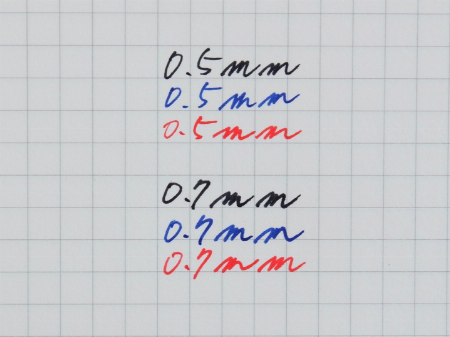 0.5mm
0.5mm
0.5mm
0.7mm
0.7mm
0.7mm